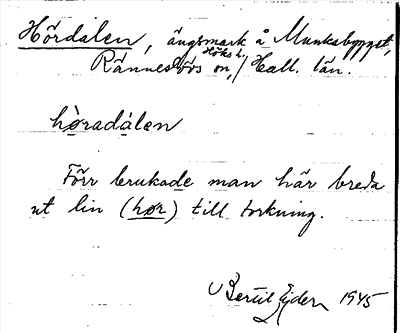 Hördalen, ängsmark å Munkabygget,
Höks h.
Ränneslövs sn, Hall. län.
höradálen
Förr brukade man här breda
ut lin (hør) till torkning.
Bertil Ejder 1945